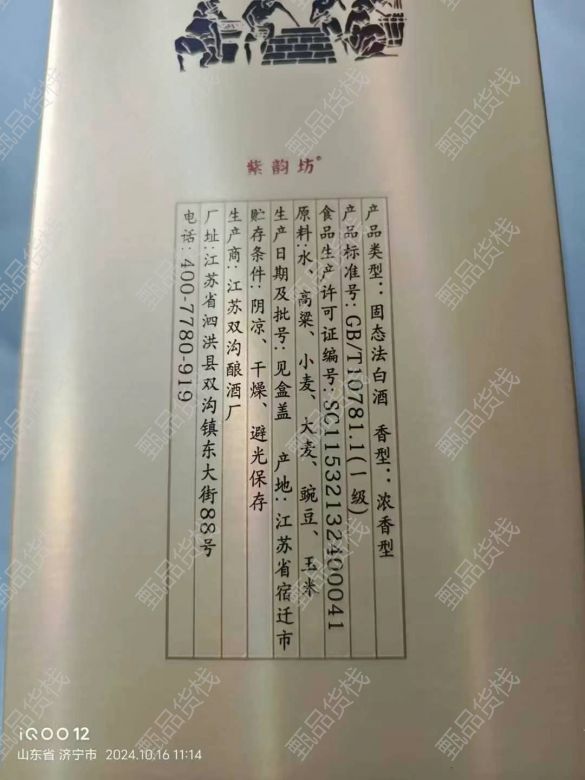 紫韵坊
产品类型：固态法白酒 香型：浓香型
产品标准号:GB/T10781.1(一级)
食品生产许可证编号:SC11532132400041
原料:水、高粱、小麦、大麦、豌豆、玉米
生产日期及批号:见盒盖 产地:江苏省宿迁市
贮存条件:阴凉、干燥、避光保存
生产商:江苏双沟酿酒厂
厂址:江苏省泗洪县双沟镇东大街88号
电话:400-7780-919
iQOO 12
山东省 济宁市 2024.10.16 11:14
甄品货栈